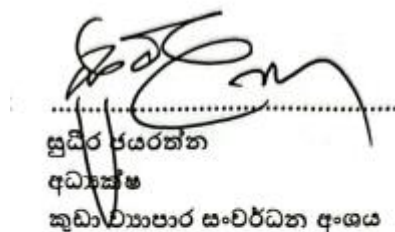 සුධීර ජයරත්න
අධ්‍යක්ෂ
කුඩා ව්‍යාපාර සංවර්ධන අංශය